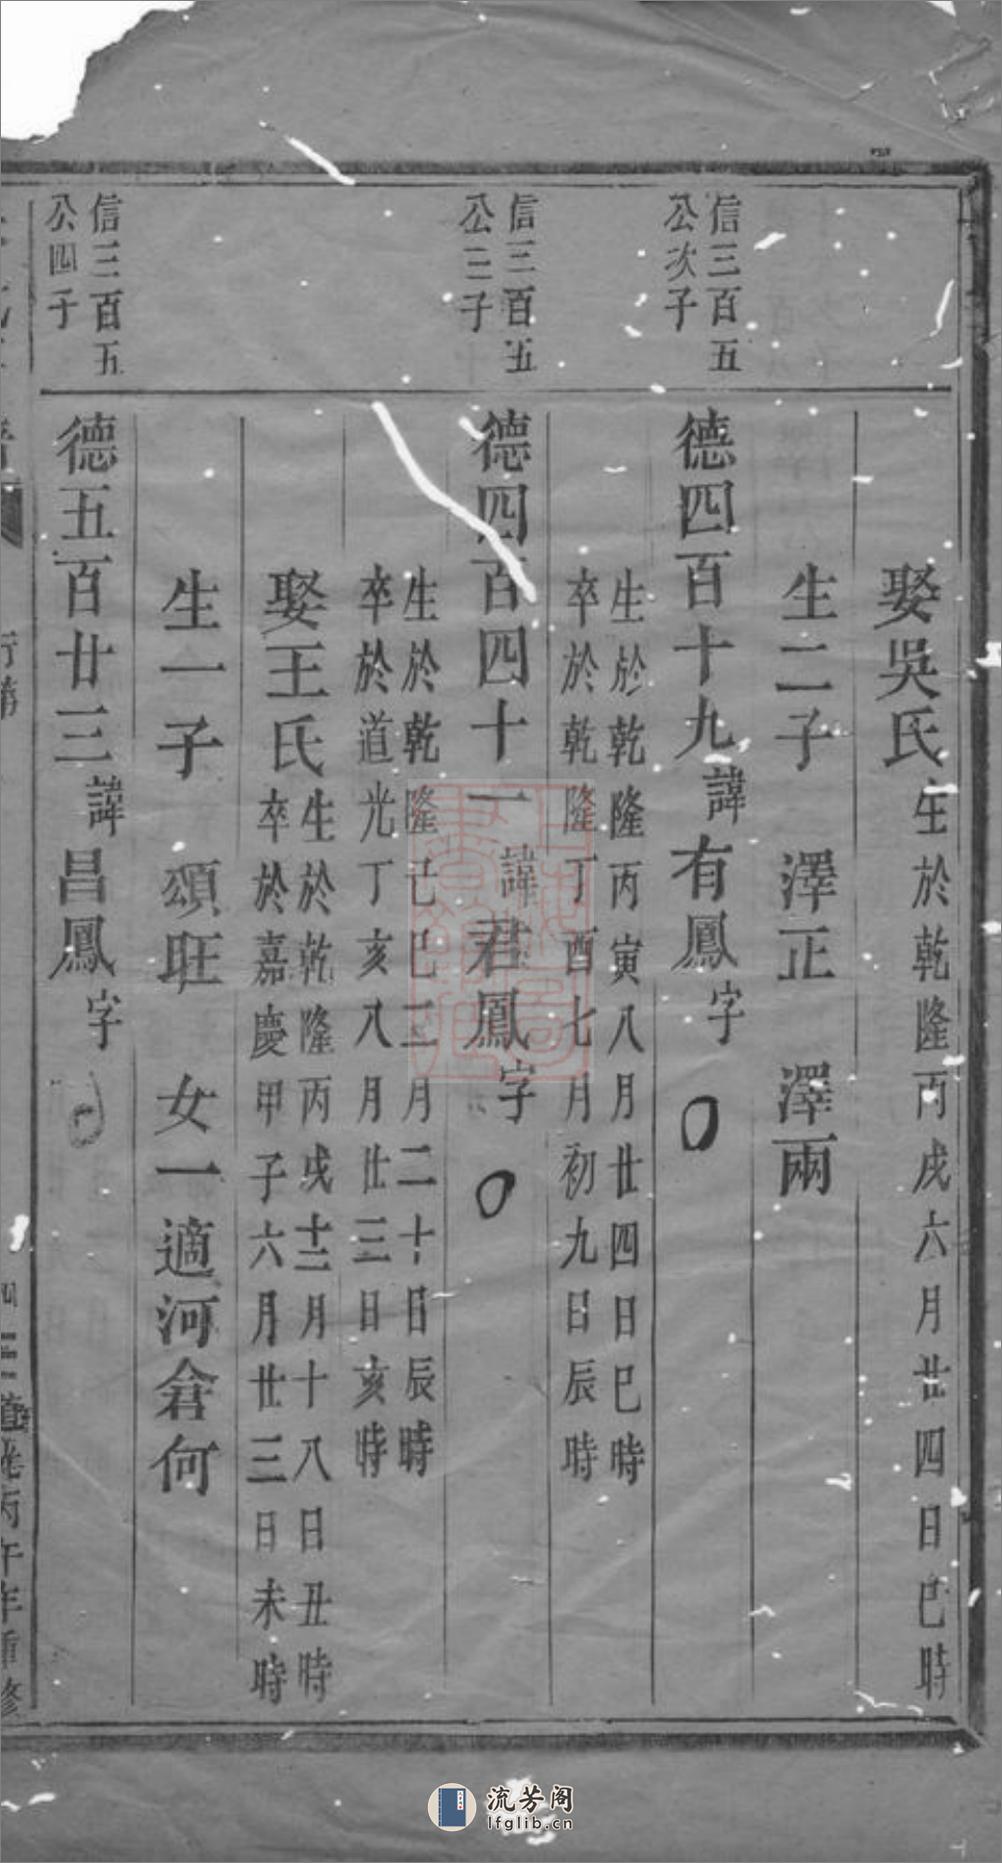 娶吳氏生於乾隆丙戌六月廿四日巳時
生二子 澤正 澤兩
信三百五
公次子
德四百十九諱有鳳字
生於乾隆丙寅八月廿四日巳時
卒於乾隆丁酉七月初九日辰時
信三百五
公三子
德四百四十一諱君鳳字
生於乾隆己巳三月二十日辰時
卒於道光丁亥八月廿三日亥時
娶王氏
生於乾隆丙戌十二月十八日丑時
卒於嘉慶甲子六月廿三日未時
生一子 頌旺 女一適河倉何
信三百五
公四子
德五百廿三諱昌鳳字
行第
道光丙午年重修
上海圖
書館藏
流芳阁
lfglib.cn